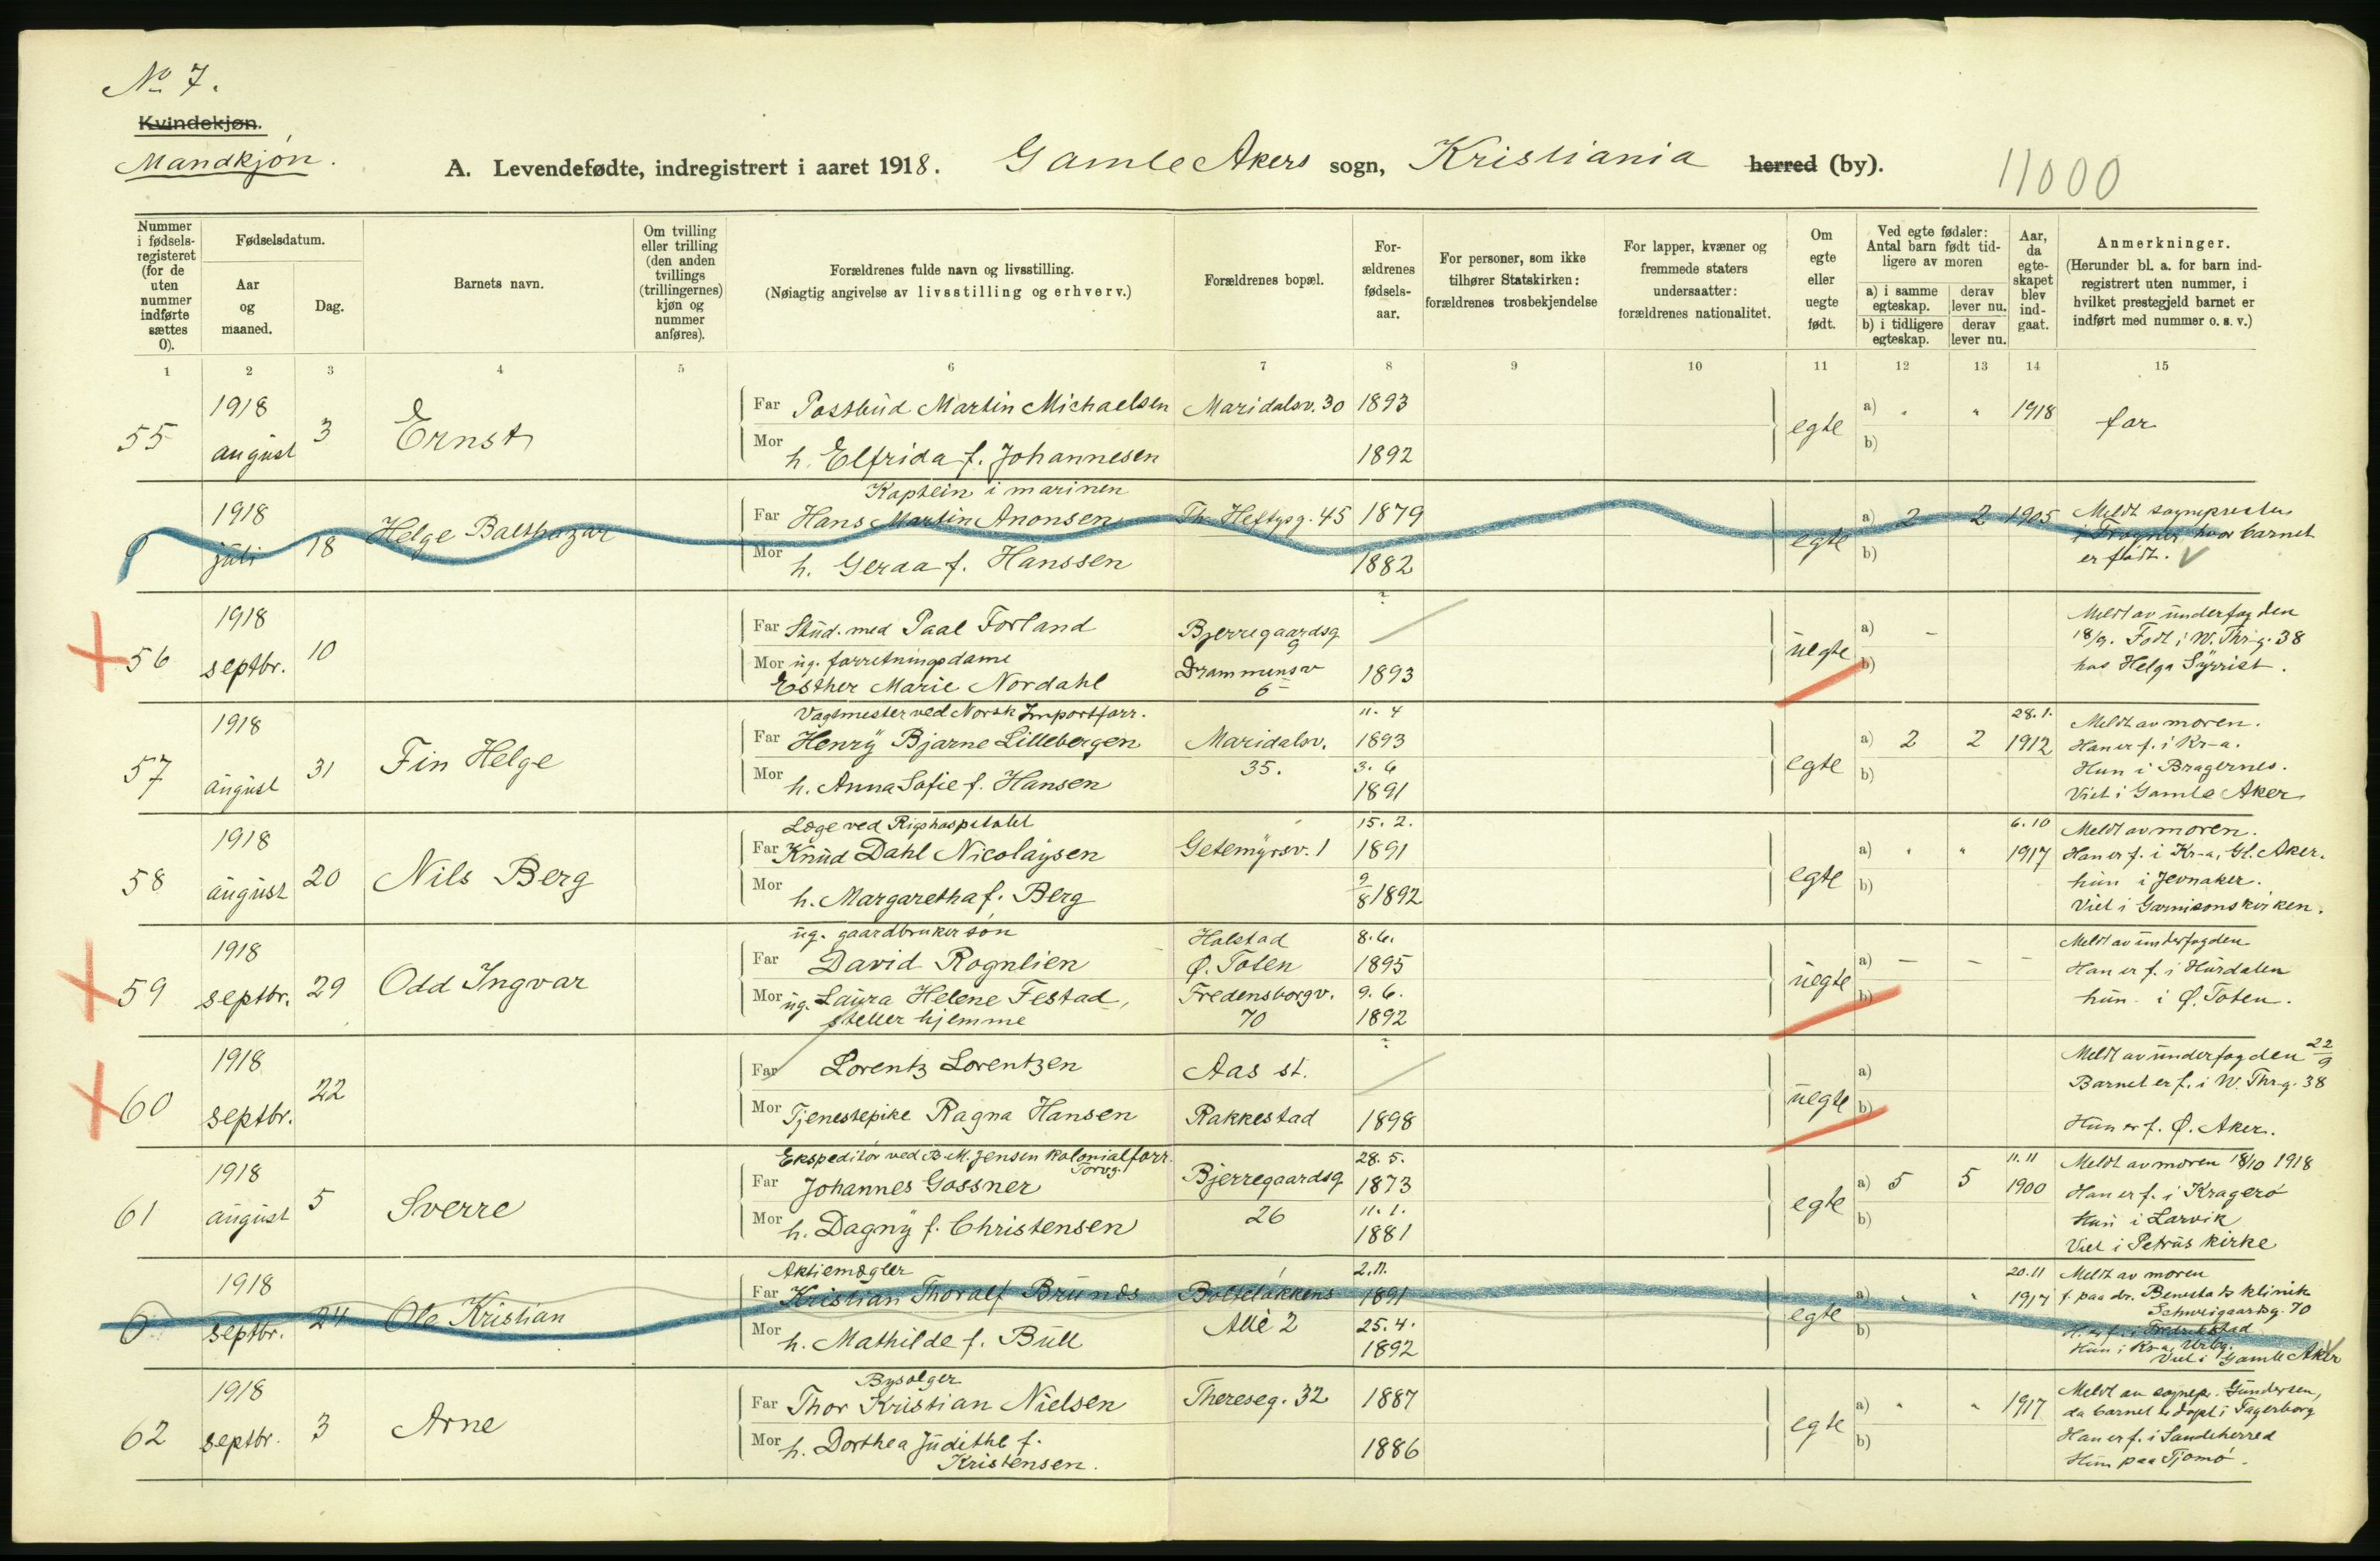 No 7.
Kvindekjøn.
Mandkjøn.
A. Levendefødte, indregistrert i aaret 1918. Gamle Akers sogn, Kristiania herred (by).
11000
Nummer i fødsels-registeret (for de uten nummer indførte sættes 0).
Fødselsdatum.
Aar og maaned.
Dag.
Barnets navn.
Om tvilling eller trilling (den anden tvillings (trillingernes) kjøn og nummer anføres).
Forældrenes fulde navn og livsstilling.
(Nøiagtig angivelse av livsstilling og erhverv.)
Forældrenes bopæl.
For-ældrenes fødsels-aar.
For personer, som ikke tilhører Statskirken: forældrenes trosbekjendelse
For lapper, kvæner og fremmede staters undersaatter: forældrenes nationalitet.
Om egte eller uegte født.
Ved egte fødsler: Antal barn født tid-ligere av moren
a) i samme egteskap.
derav lever nu.
b) i tidligere egteskap.
derav lever nu.
Aar, da egte-skapet blev ind-gaat.
Anmerkninger.
(Herunder bl. a. for barn ind-registrert uten nummer, i hvilket prestegjeld barnet er indført med nummer o. s. v.)
1 2 3 4 5 6 7 8 9 10 11 12 13 14 15
55 1918 august 3 Ernst
Far Postbud Martin Michaelsen Maridalsv. 30 1893
Mor h. Elfrida f. Johannesen 1892
egte a) b) 1918 far
0 1918 juli 18 Helge Balthazar
Kaptein i marinen
Far Hans Martin Anonsen Th. Heftysg. 45 1879
Mor h. Gerda f. Hanssen 1882
egte a) 2 2 1905 b)
Meldt sognepresten
i Frogner, hvor barnet
er født.
56 1918 septbr. 10
Far Stud. med Paal Forland Bjerregaardsg 9 ?
Mor ug. forretningsdame
Esther Marie Nordahl Drammensv 6 1893
uegte a) – b)
Meldt av underfogden
18/9. Født i W. Thr-g. 38
hos Helga Syrrist.
57 1918 august 31 Fin Helge
Vagtmester ved Norsk Importforr.
Far Henry Bjarne Lillebergen Maridalsv. 35. 11. 4 1893
Mor h. Anna Sofie f. Hansen 3. 6 1891
egte a) 2 2 28.1. 1912 b)
Meldt av moren.
Han er f. i Kr-a.
Hun i Bragernes.
Viet i Gamle Aker
58 1918 august 20 Nils Berg
Læge ved Rigshospitalet
Far Knud Dahl Nicolaysen Getemyrsv. 1 15. 2. 1891
Mor h. Margaretha f. Berg 9/8 1892
egte a) b) 6.10 1917
Meldt av moren.
Han er f. i Kr-a, Gl. Aker.
hun i Jevnaker.
Viet i Garnisonskirken.
59 1918 septbr. 29 Odd Ingvar
ug. gaardbrukersøn
Far David Rognlien Halstad Ø. Toten 8.6. 1895
Mor ug. Laura Helene Festad,
steller hjemme Fredensborgv. 70 9. 6. 1892
uegte a) – – – b)
Meldt av underfogden
Han er f. i Hurdalen
hun i Ø. Toten.
60 1918 septbr. 22
Far Lorentz Lorentzen Aas st. ?
Mor Tjenestepike Ragna Hansen Rakkestad 1898
uegte a) b)
Meldt av underfogden 22/9
Barnet er f. i W. Thr-g. 38
Hun er f. Ø. Aker.
61 1918 august 5 Sverre
Ekspeditør ved B. M. Jensen kolonialforr. Torvg.
Far Johannes Gossner Bjerregaardsg 26 28. 5. 1873
Mor h. Dagny f. Christensen 11. 1. 1881
egte a) 5 5 11. 11 1900 b)
Meldt av moren 18/10 1918
Han er f. i Kragerø
Hun i Larvik
Viet i Petrus kirke
0 1918 septbr. 24 Ole Kristian
Aktiemægler
Far Kristian Thoralf Brunæs Bolteløkkens Allè 2 2. 11. 1891
Mor h. Mathilde f. Bull 25. 4. 1892
egte a) b) 20.11 1917
Meldt av moren
f paa dr. klinik
Schweigaardsg. 70
H. er f. i Fredrikstad
Hun i Kr-a,
Viet i Gamle Aker
62 1918 septbr. 3 Arne
Bysælger
Far Thor Kristian Nielsen Thereseg. 32 1887
Mor h. Dorthea Judithe f.
Kristensen. 1886
egte a) b) 1917
Meldt av sognepr. Gundersen,
da barnet er døpt i Fagerborg
Han er f. i Sandeherred
Hun paa Tjømø.